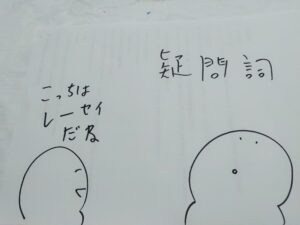 疑問詞
こっちは
レーセイ
だな